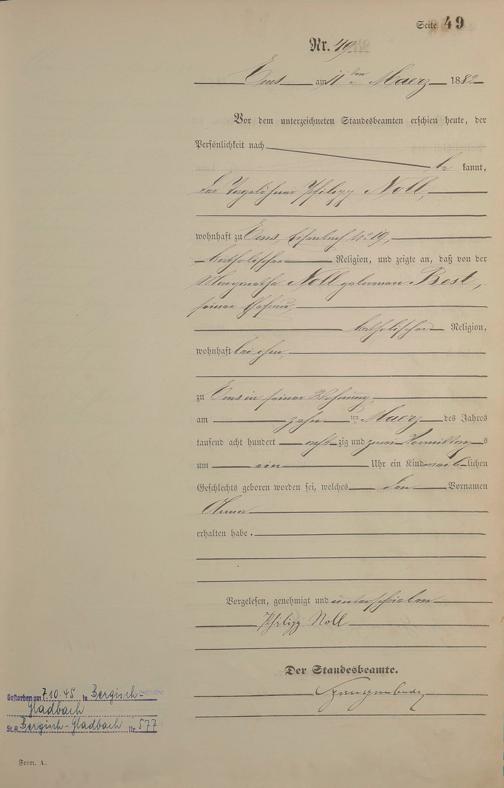 Seite 49
Nr. 49
Ems am 11ten Maerz 1882
Vor dem unterzeichneten Standesbeamten erschien heute, der
Persönlichkeit nach
be kannt,
der Tagelöhner Philipp Noll,
wohnhaft zu Ems, No 19,
katholischer Religion, und zeigte an, daß von der
Margaretha Noll geborenen Best,
seiner Ehefrau,
katholischer Religion,
wohnhaft bei ihm,
zu Ems in seiner Wohnung
am zehn ten Maerz des Jahres
tausend acht hundert acht zig und zwei Vormittags
um ein Uhr ein Kind weiblichen
Geschlechts geboren worden sei, welches den Vornamen
Anna
erhalten habe.
Vorgelesen, genehmigt und unterschrieben
Philipp Noll
Der Standesbeamte.
Gestorben am 7.10.45 in Bergisch-
Gladbach
St.A. Bergisch-Gladbach Nr. 577
Form. A.